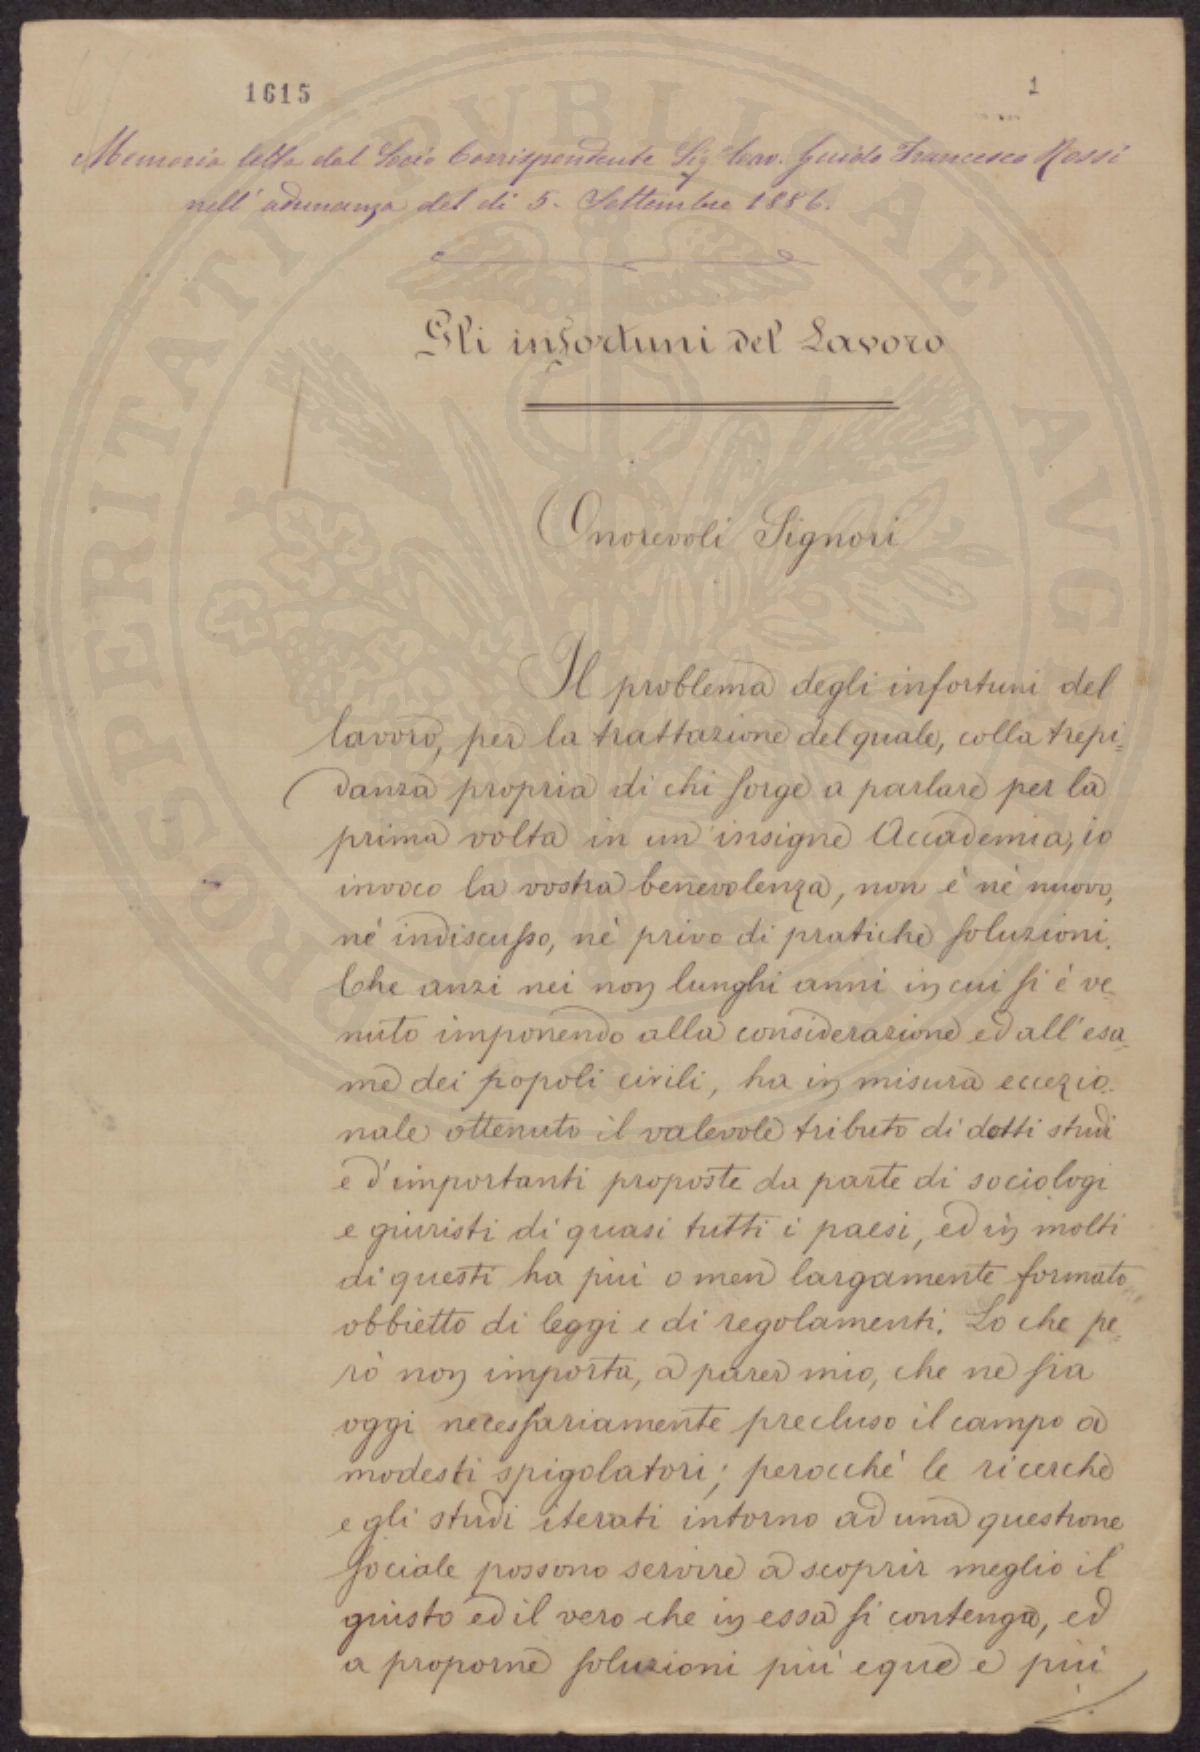 1615
1
Memoria letta dal Socio Corrispondente Sig. Cav. Guido Francesco Rossi
nell'adunanza del dì 5. Settembre 1886.
Gli infortuni del Lavoro
Onorevoli Signori
Il problema degli infortuni del
lavoro, per la trattazione del quale, colla trepi=
danza propria di chi sorge a parlare per la
prima volta in un'insigne Accademia, io
invoco la vostra benevolenza, non è nè nuovo,
nè indiscusso, nè privo di pratiche soluzioni.
Che anzi nei non lunghi anni in cui si è ve-
nuto imponendo alla considerazione ed all'esa-
me dei popoli civili, ha in misura eccezio-
nale ottenuto il valevole tributo di dotti studi
e d'importanti proposte da parte di sociologi
e giuristi di quasi tutti i paesi, ed in molti
di questi ha più o men largamente formato
obbietto di leggi e di regolamenti. Lo che pe-
rò non importa, a parer mio, che ne sia
oggi necessariamente precluso il campo a
modesti spigolatori; perocchè le ricerche
e gli studi iterati intorno ad una questione
sociale possono servire a scoprir meglio il
giusto ed il vero che in essa si contenga, ed
a proporne soluzioni più eque e più
PROSPERITATI PVBLICAE AVGENDAE